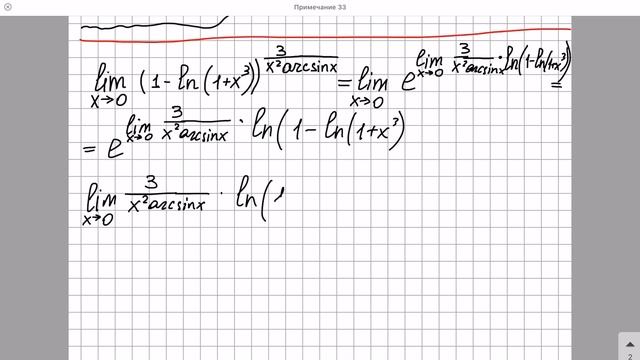 Примечание 33
lim x→0 (1-ln(1+x³))^(3/(x²arcsinx)) = lim x→0 e^(lim x→0 3/(x²arcsinx)·ln(1-ln(1+x³)) =
= e^(lim x→0 3/(x²arcsinx) · ln(1-ln(1+x³)
lim x→0 3/(x²arcsinx) · ln(
2